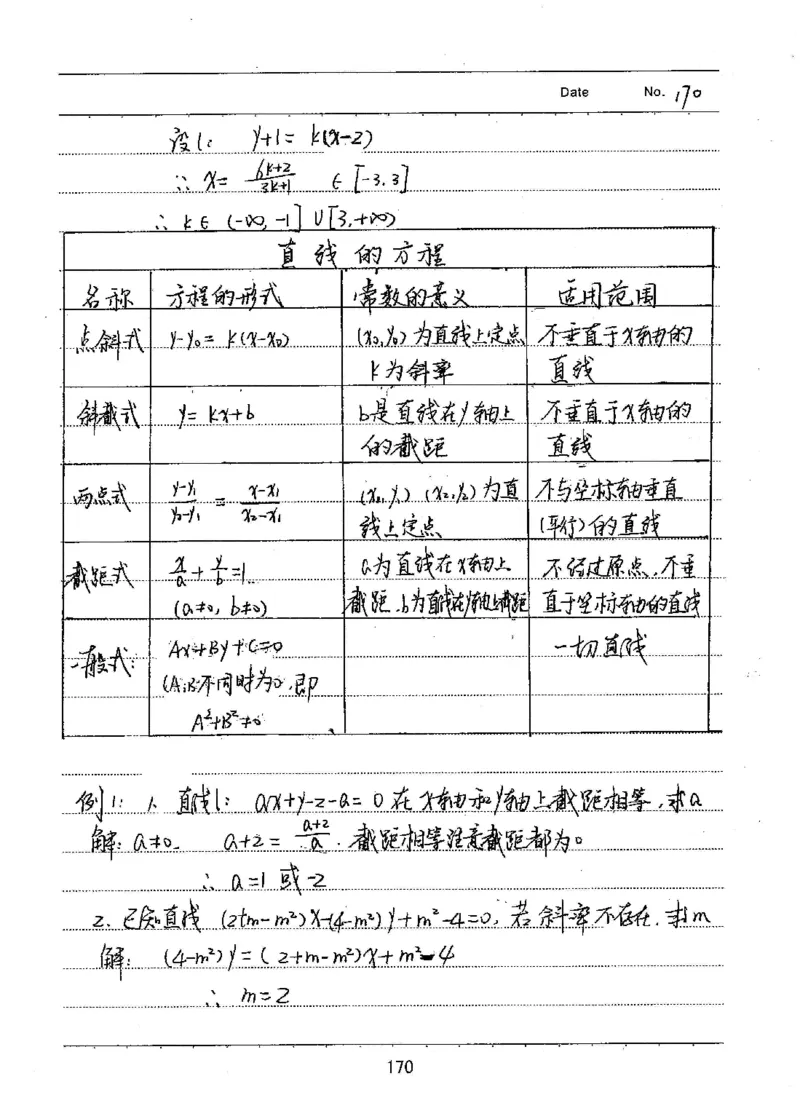 Date No. 170
设l: y+1=k(x-2)
∴ x= (6k+2)/(3k+1) ∈ [-3,3]
∴ k∈ (-∞,-1]∪[3,+∞)
直线的方程
名称 方程的形式 常数的意义 适用范围
点斜式 y-y₀=k(x-x₀) (x₀,y₀)为直线上定点 不垂直于x轴的
k为斜率 直线
斜截式 y=kx+b b是直线在y轴上 不垂直于x轴的
的截距 直线
两点式 (y-y₁)/(y₂-y₁) = (x-x₁)/(x₂-x₁) (x₁,y₁) (x₂,y₂)为直 不与坐标轴垂直
线上定点 (平行)的直线
截距式 x/a + y/b =1 a为直线在x轴上 不经过原点,不垂
(a≠0, b≠0) 截距,b为直线在y轴上截距 直于坐标轴的直线
一般式: Ax+By+C=0 一切直线
(A,B不同时为0,即
A²+B²≠0
例1: 1. 直线l: ax+y-2-a=0在x轴和y轴上截距相等,求a
解: a≠0. a+2= (a+2)/a . 截距相等注意截距都为0
∴ a=1 或 -2
2. 已知直线 (2+m-m²)x-(4-m²)y+m²-4=0, 若斜率不存在,求m
解: (4-m²)y=(2+m-m²)x+m²-4
∴ m=2
170